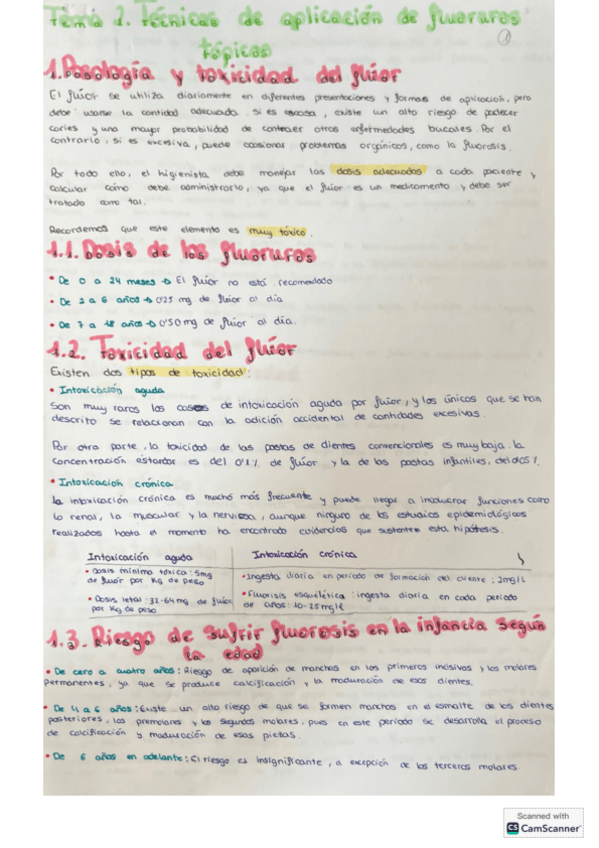 Tema 1. Técnicas de aplicación de fluoruros
tópicos
1
1. Posología y toxicidad del flúor
El flúor se utiliza diariamente en diferentes presentaciones y formas de aplicación, pero
debe usarse la cantidad adecuada. Si es escasa, existe un alto riesgo de padecer
caries y una mayor probabilidad de contraer otras enfermedades bucales. Por el
contrario, si es excesiva, puede ocasionar problemas orgánicos, como la fluorosis.
Por todo ello, el higienista debe manejar las dosis adecuadas a cada paciente y
calcular cómo debe administrarlo, ya que el flúor es un medicamento y debe ser
tratado como tal.
Recordemos que este elemento es muy tóxico.
1.1. Dosis de los fluoruros
• De 0 a 24 meses → El flúor no está recomendado
• De 2 a 6 años → 0'25 mg de flúor al día
• De 7 a 18 años → 0'50 mg de flúor al día.
1.2. Toxicidad del flúor
Existen dos tipos de toxicidad:
• Intoxicación aguda
Son muy raros los casos de intoxicación aguda por flúor, y los únicos que se han
descrito se relacionan con la adición accidental de cantidades excesivas.
Por otra parte, la toxicidad de las pastas de dientes convencionales es muy baja. la
concentración estándar es del 0'1% de flúor y la de las pastas infantiles, del 0'05%.
• Intoxicación crónica
la intoxicación crónica es mucho más frecuente y puede llegar a involucrar funciones como
la renal, la muscular y la nerviosa, aunque ninguno de los estudios epidemiológicos
realizados hasta el momento ha encontrado evidencias que sustenten esta hipótesis.
Intoxicación aguda Intoxicación crónica
• Dosis mínima tóxica: 5mg de flúor por Kg de peso
• Ingesta diaria en periodo de formación del diente: 2mg/L
• Dosis letal: 32-64mg de flúor por Kg de peso
• Fluorisis esquelética: ingesta diaria en cada periodo de años: 10-25mg/L
1.3. Riesgo de sufrir fluorosis en la infancia según
la edad
• De cero a cuatro años: Riesgo de aposición de manchas en los primeros incisivos y los molares
permanentes, ya que se produce calcificación y la maduración de esos dientes.
• De 4 a 6 años: Existe un alto riesgo de que se formen manchas en el esmalte de los dientes
posteriores, los premolares y los segundos molares, pues en este período se desarrolla el proceso
de calcificación y maduración de esas piezas.
• De 6 años en adelante: El riesgo es insignificante, a excepción de los terceros molares.
Scanned with
CS CamScanner